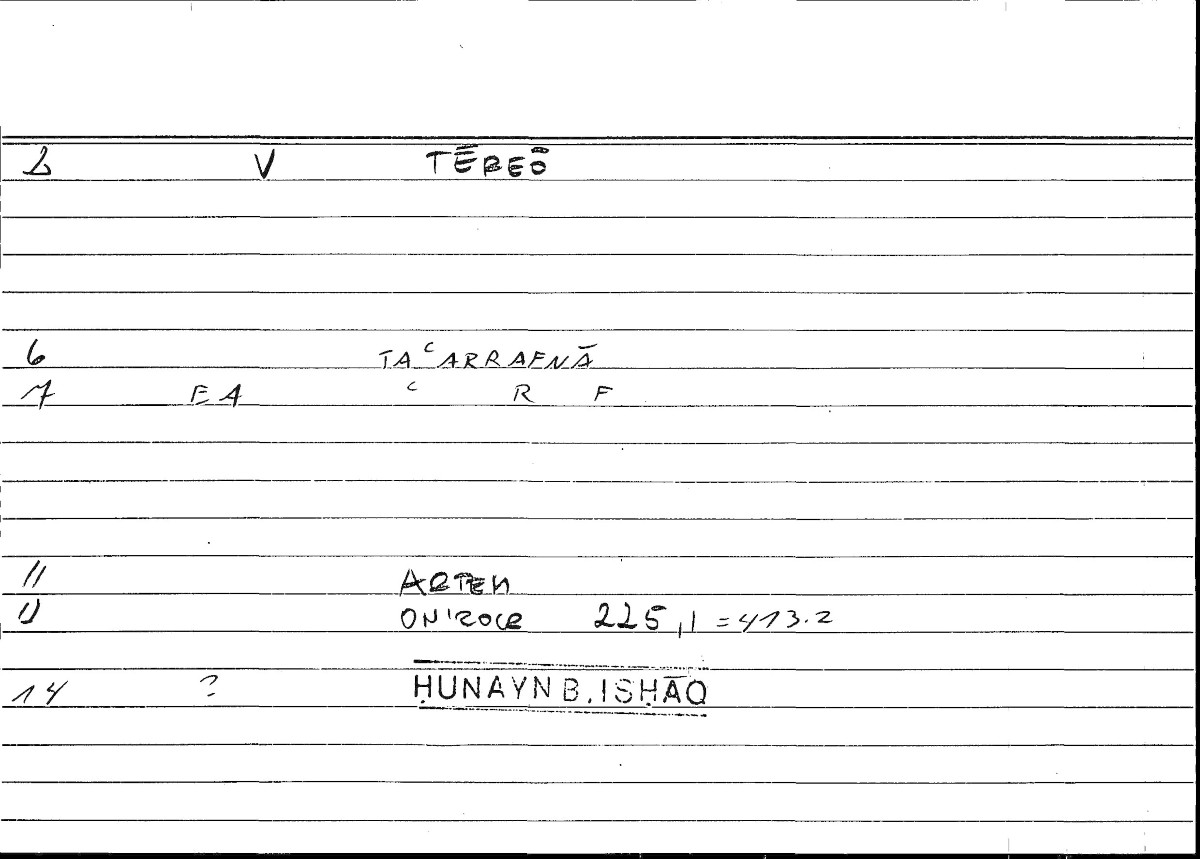 2 V TĒREŌ
6 TAʿARRAFNĀ
7 EA ʿ R F
11 ARTEM
ONIROCR 225,1 = 413.2
14 ? ḤUNAYN B. ISḤĀQ